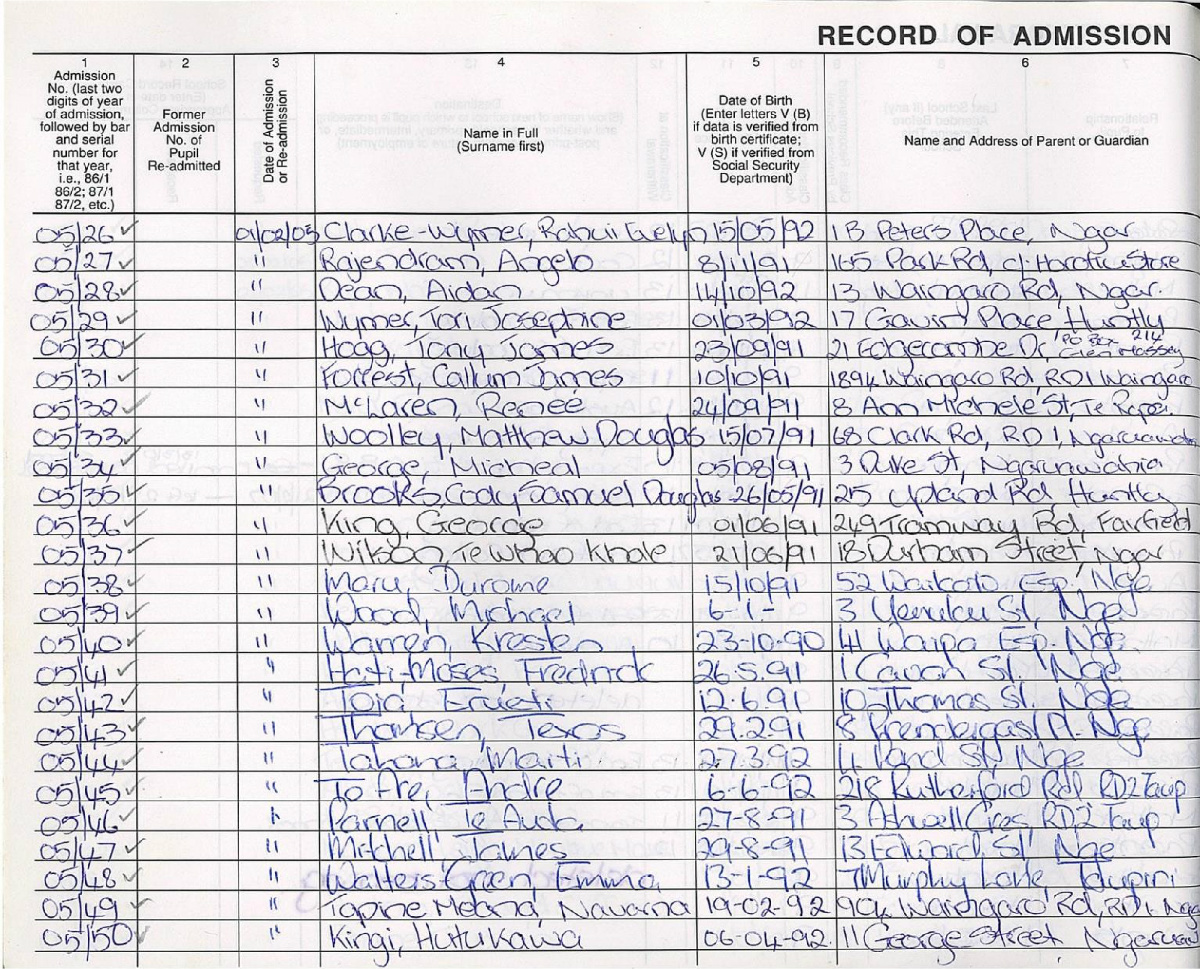 RECORD OF ADMISSION
1 2 3 4 5 6
Admission No. (last two digits of year of admission, followed by bar and serial number for that year, i.e., 86/1 86/2; 87/1 87/2, etc.)
Former Admission No. of Pupil Re-admitted
Date of Admission or Re-admission
Name in Full (Surname first)
Date of Birth (Enter letters V (B) if data is verified from birth certificate; V (S) if verified from Social Security Department)
Name and Address of Parent or Guardian
05/26 ✓ 01/02/05 Clarke-Wymer, Rahui Evelyn 15/05/92 1 B Peters Place, Ngar
05/27 ✓ " Rajendram, Angelo 8/11/91 165 Park Rd, c/ Horotiu Store
05/28 ✓ " Dean, Aidan 14/10/92 13 Waingaro Rd, Ngar.
05/29 ✓ " Wymer, Tori Josephine 01/03/92 17 Place, Huntly
05/30 ✓ " Hoag, Tony James 23/09/91 21 Edgecombe Dr, PO Box 214 Glen Massey
05/31 ✓ " Forrest, Callum James 10/10/91 1894 Waingaro Rd RD1 Waingaro
05/32 ✓ " McLaren, Renee 24/09/91 8 Ann Michele St, Te Rapa
05/33 ✓ " Woolley, Matthew Douglas 15/07/91 68 Clark Rd, RD 1, Ngaruawahia
05/34 ✓ " George, Micheal 05/08/91 3 Duke St, Ngaruawahia
05/35 ✓ " Brooks, Cody Samuel Douglas 26/05/91 215 Upland Rd Huntly
05/36 ✓ " King, George 01/06/91 249 Tramway Rd, Fairfield
05/37 ✓ " Wilson, Te Whao Khale 21/06/91 18 Durham Street, Ngar
05/38 ✓ " Maru, Durome 15/10/91 52 Waikato Esp. Nga
05/39 ✓ " Wood, Michael 6-1- 3 St. Nga
05/40 ✓ " Warren, Kresten 23-10-90 41 Waipa Esp. Nga
05/41 ✓ " Haiti-Moses, Fredrick 26.5.91 1 St. Nga
05/42 ✓ " Toia, Erueti 12.6.91 10 Thomas St. Nga
05/43 ✓ " Thomsen, Texas 29.2.91 8 Prendergast Pl. Nga
05/44 ✓ " Tahana, Marti 27.3.92 4 St. Nga
05/45 ✓ " Andre 6-6-92 218 Rutherford Rd, RD2 Taup
05/46 ✓ " Parnell, Te Auda 27-8-91 3 Ashwell Cres, RD2 Taup
05/47 ✓ " Mitchell, James 29-8-91 13 Edward St. Nga
05/48 ✓ " Walters-Green, Emma 13-1-92 7 Murphy Lane, Taupiri
05/49 ✓ " Tapine Meana, Navarna 19-02-92 904 Waingaro Rd, RD1. Nga
05/50 ✓ " Kingi, Hutukawa 06-04-92 11 George Street, Ngaruaw